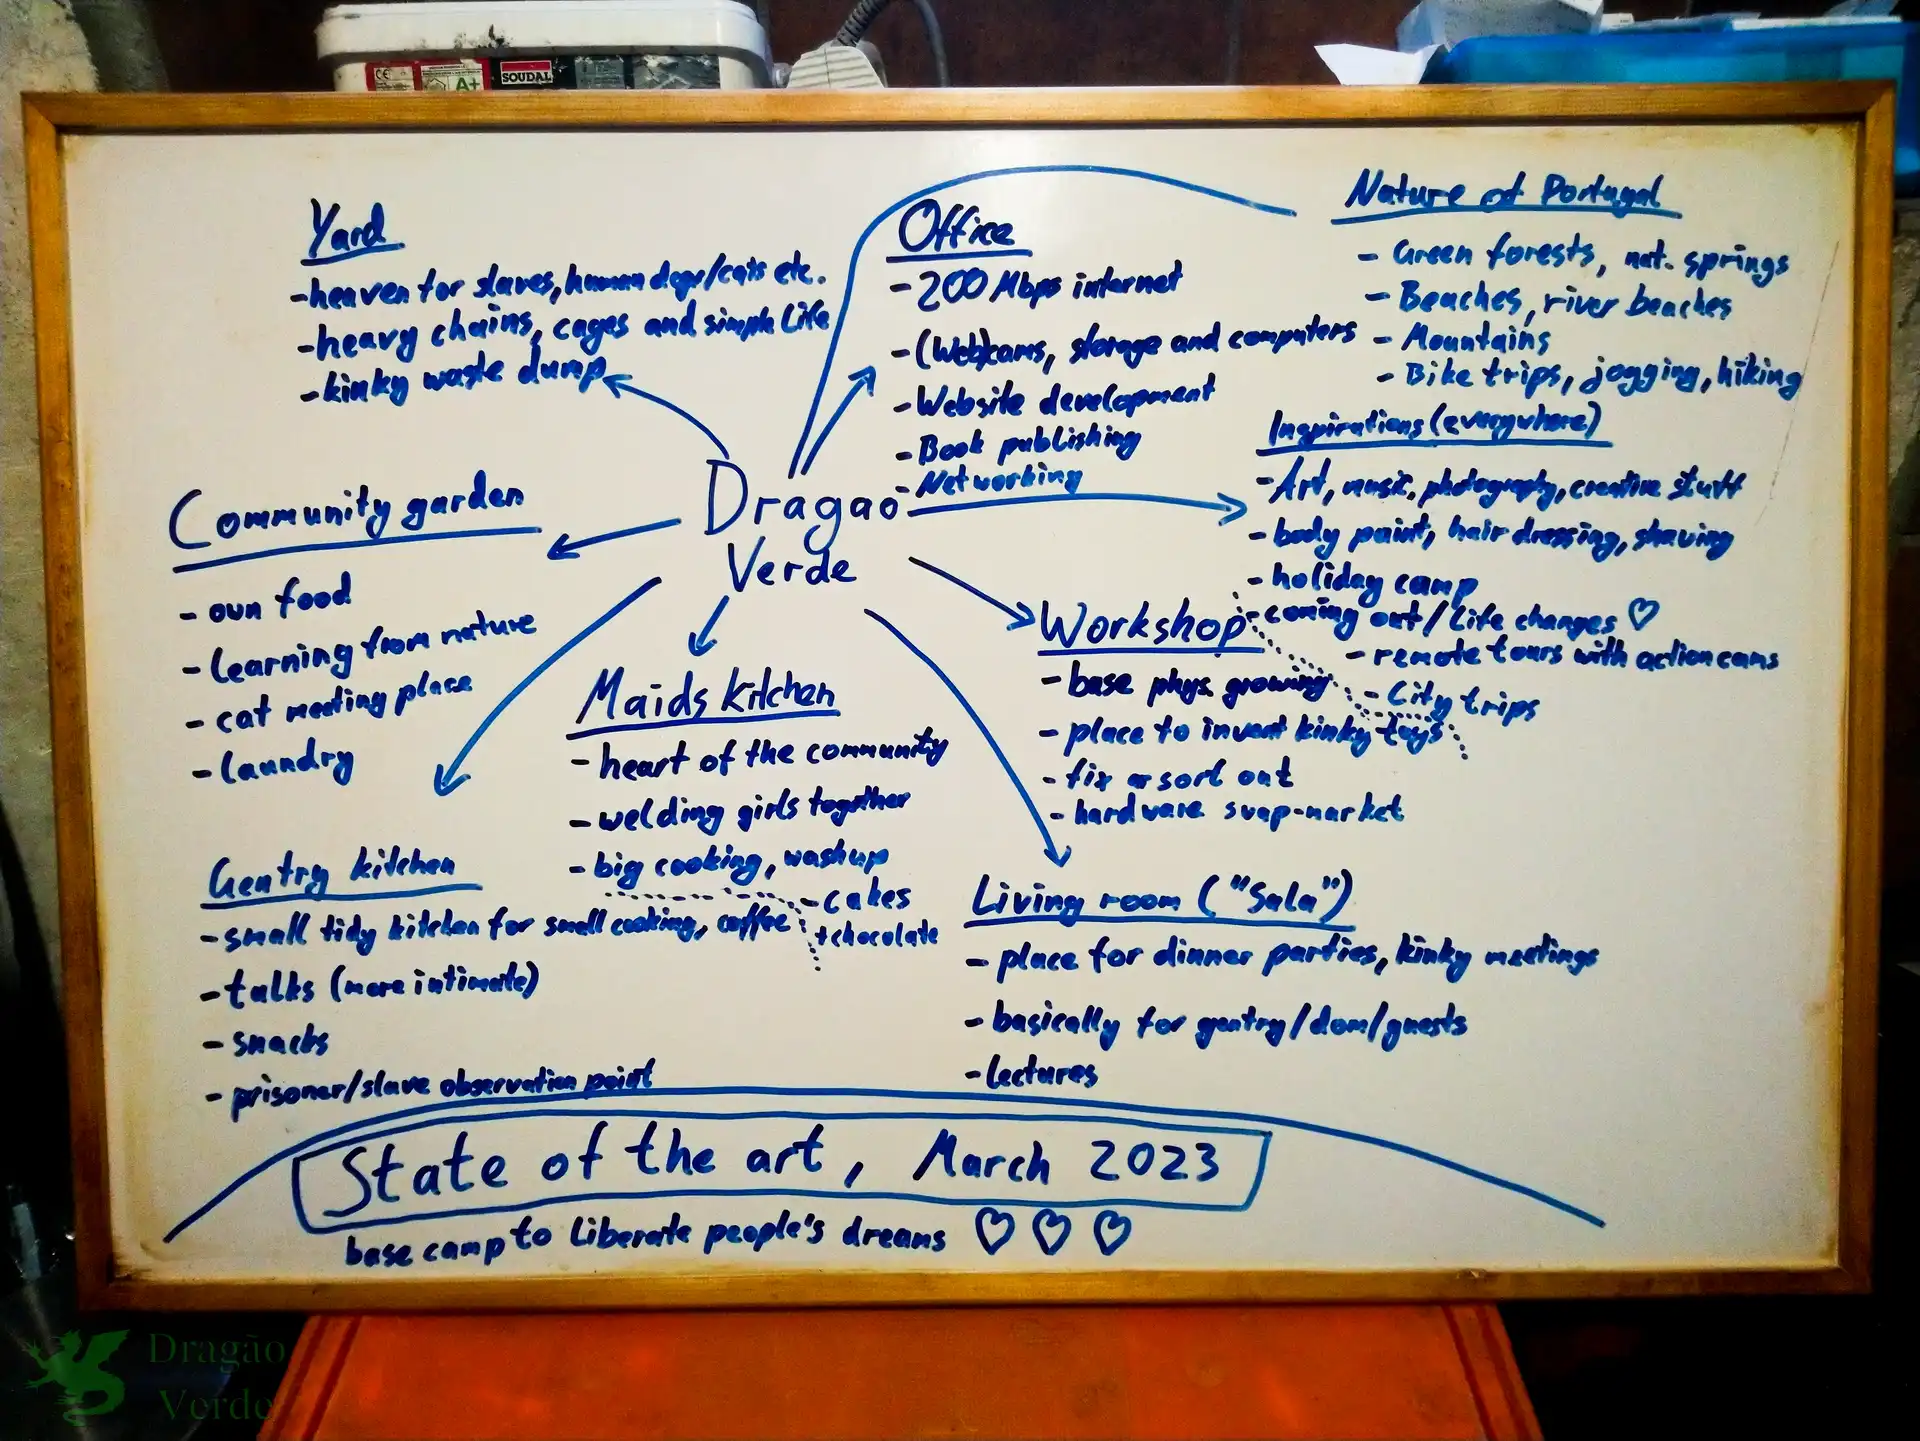 CE
A+
SOUDAL
Yard
-heaven for slaves, human dogs/cats etc.
-heavy chains, cages and simple life
-kinky waste dump
Office
-200 Mbps internet
-(Web)cams, storage and computers
-Website development
-Book publishing
-Networking
Nature of Portugal
- Green forests, nat. springs
- Beaches, river beaches
- Mountains
- Bike trips, jogging, hiking
Inspirations (everywhere)
-Art, music, photography, creative stuff
-body paint, hair dressing, shaving
-holiday camp
-coming out/Life changes ♡
-remote tours with actioncams
-City trips
Dragao
Verde
Community garden
- own food
- learning from nature
- cat meeting place
- laundry
Maids kitchen
- heart of the community
- welding girls together
- big cooking, washup
- cakes
+chocolate
Workshop
- base phys. growing
- place to invent kinky toys
- fix or sort out
- hardware swap-market
Gentry kitchen
- small tidy kitchen for small cooking, coffee
- talks (more intimate)
- snacks
- prisoner/slave observation point
Living room ("Sala")
- place for dinner parties, kinky meetings
- basically for gentry/dom/guests
- lectures
State of the art, March 2023
base camp to liberate people's dreams ♡ ♡ ♡
Dragão
Verde